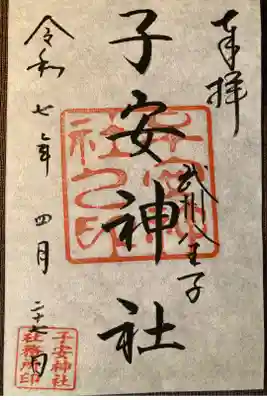 奉拝
武州八王子
子安神社
子安神社之印
令和七年四月二十七日
子安神社
社務所印